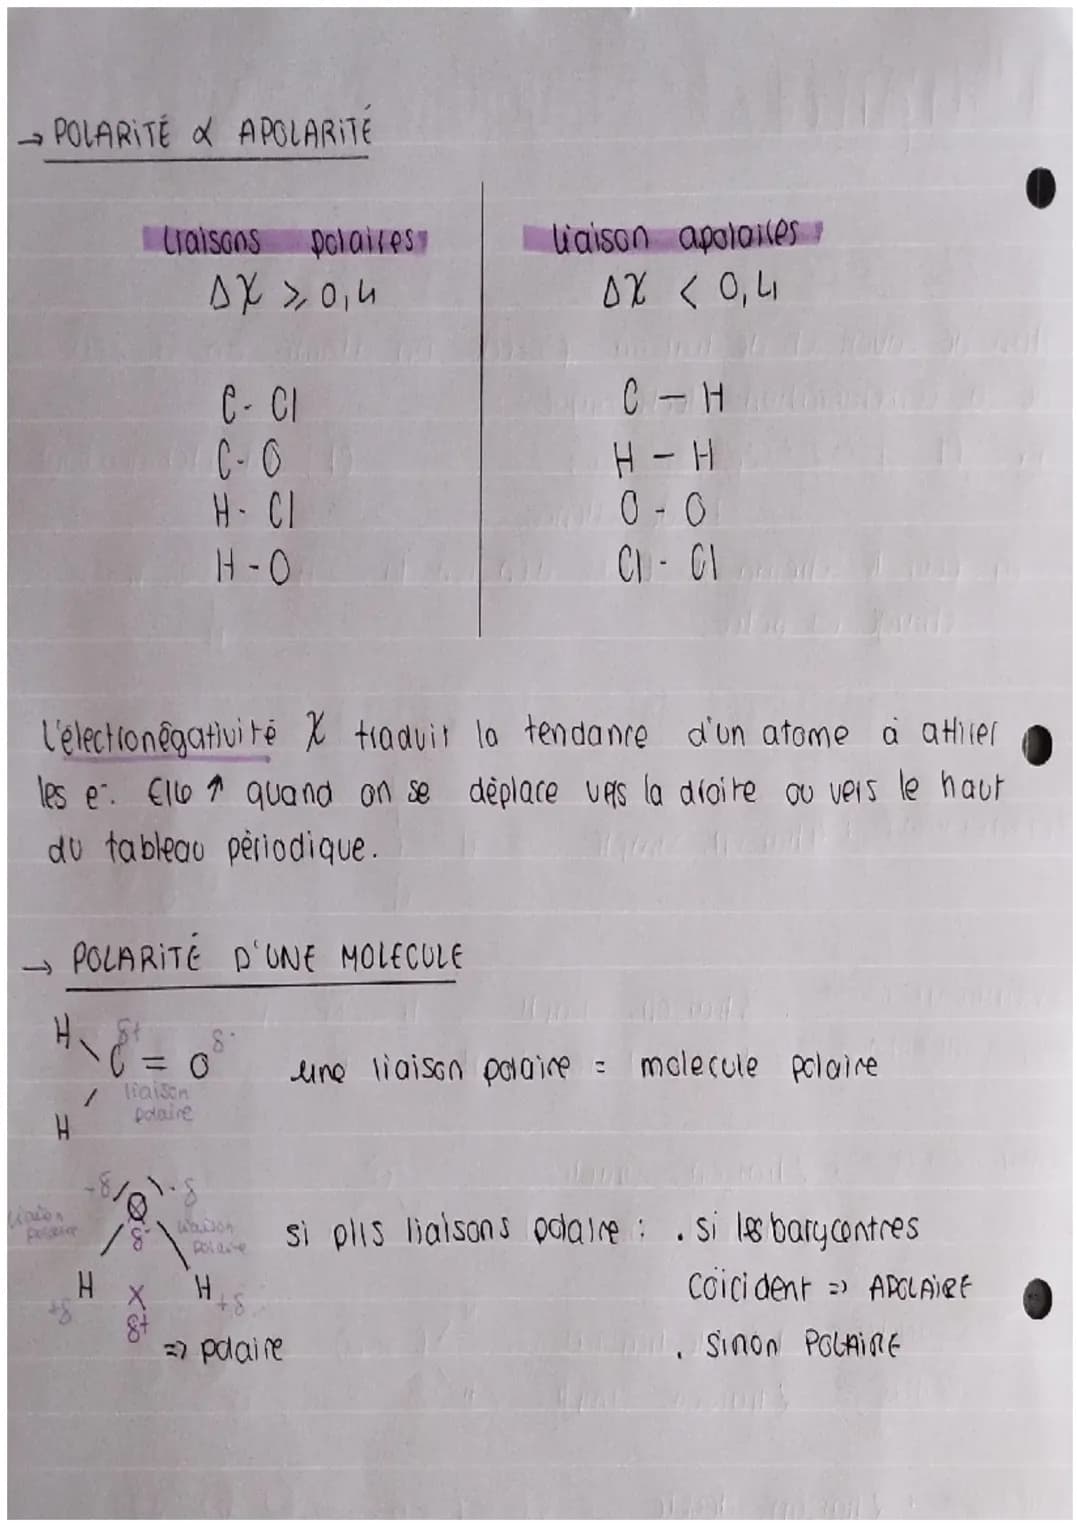 → POLARITÉ & APOLARITÉ
Liaisons polaires
liaison apolaires
ΔX ⩾ 0,4
ΔX < 0,4
C - Cl
C - H
C - O
H - H
H - Cl
O - O
H - O
Cl - Cl
L'électronégativité X traduit la tendance d'un atome à attirer
les e-. Elle ↑ quand on se déplace vers la droite ou vers le haut
du tableau périodique.
→ POLARITÉ D'UNE MOLECULE
H δ+ δ-
C = O
liaison
polaire
H
une liaison polaire = molecule polaire
-δ -δ
O
liaison
polaire
δ-
liaison
polaire
H X H
+δ δ+ +δ
=> polaire
si plls liaisons polaire : . si les barycentres
coicident => APOLAIRE
. sinon POLAIRE